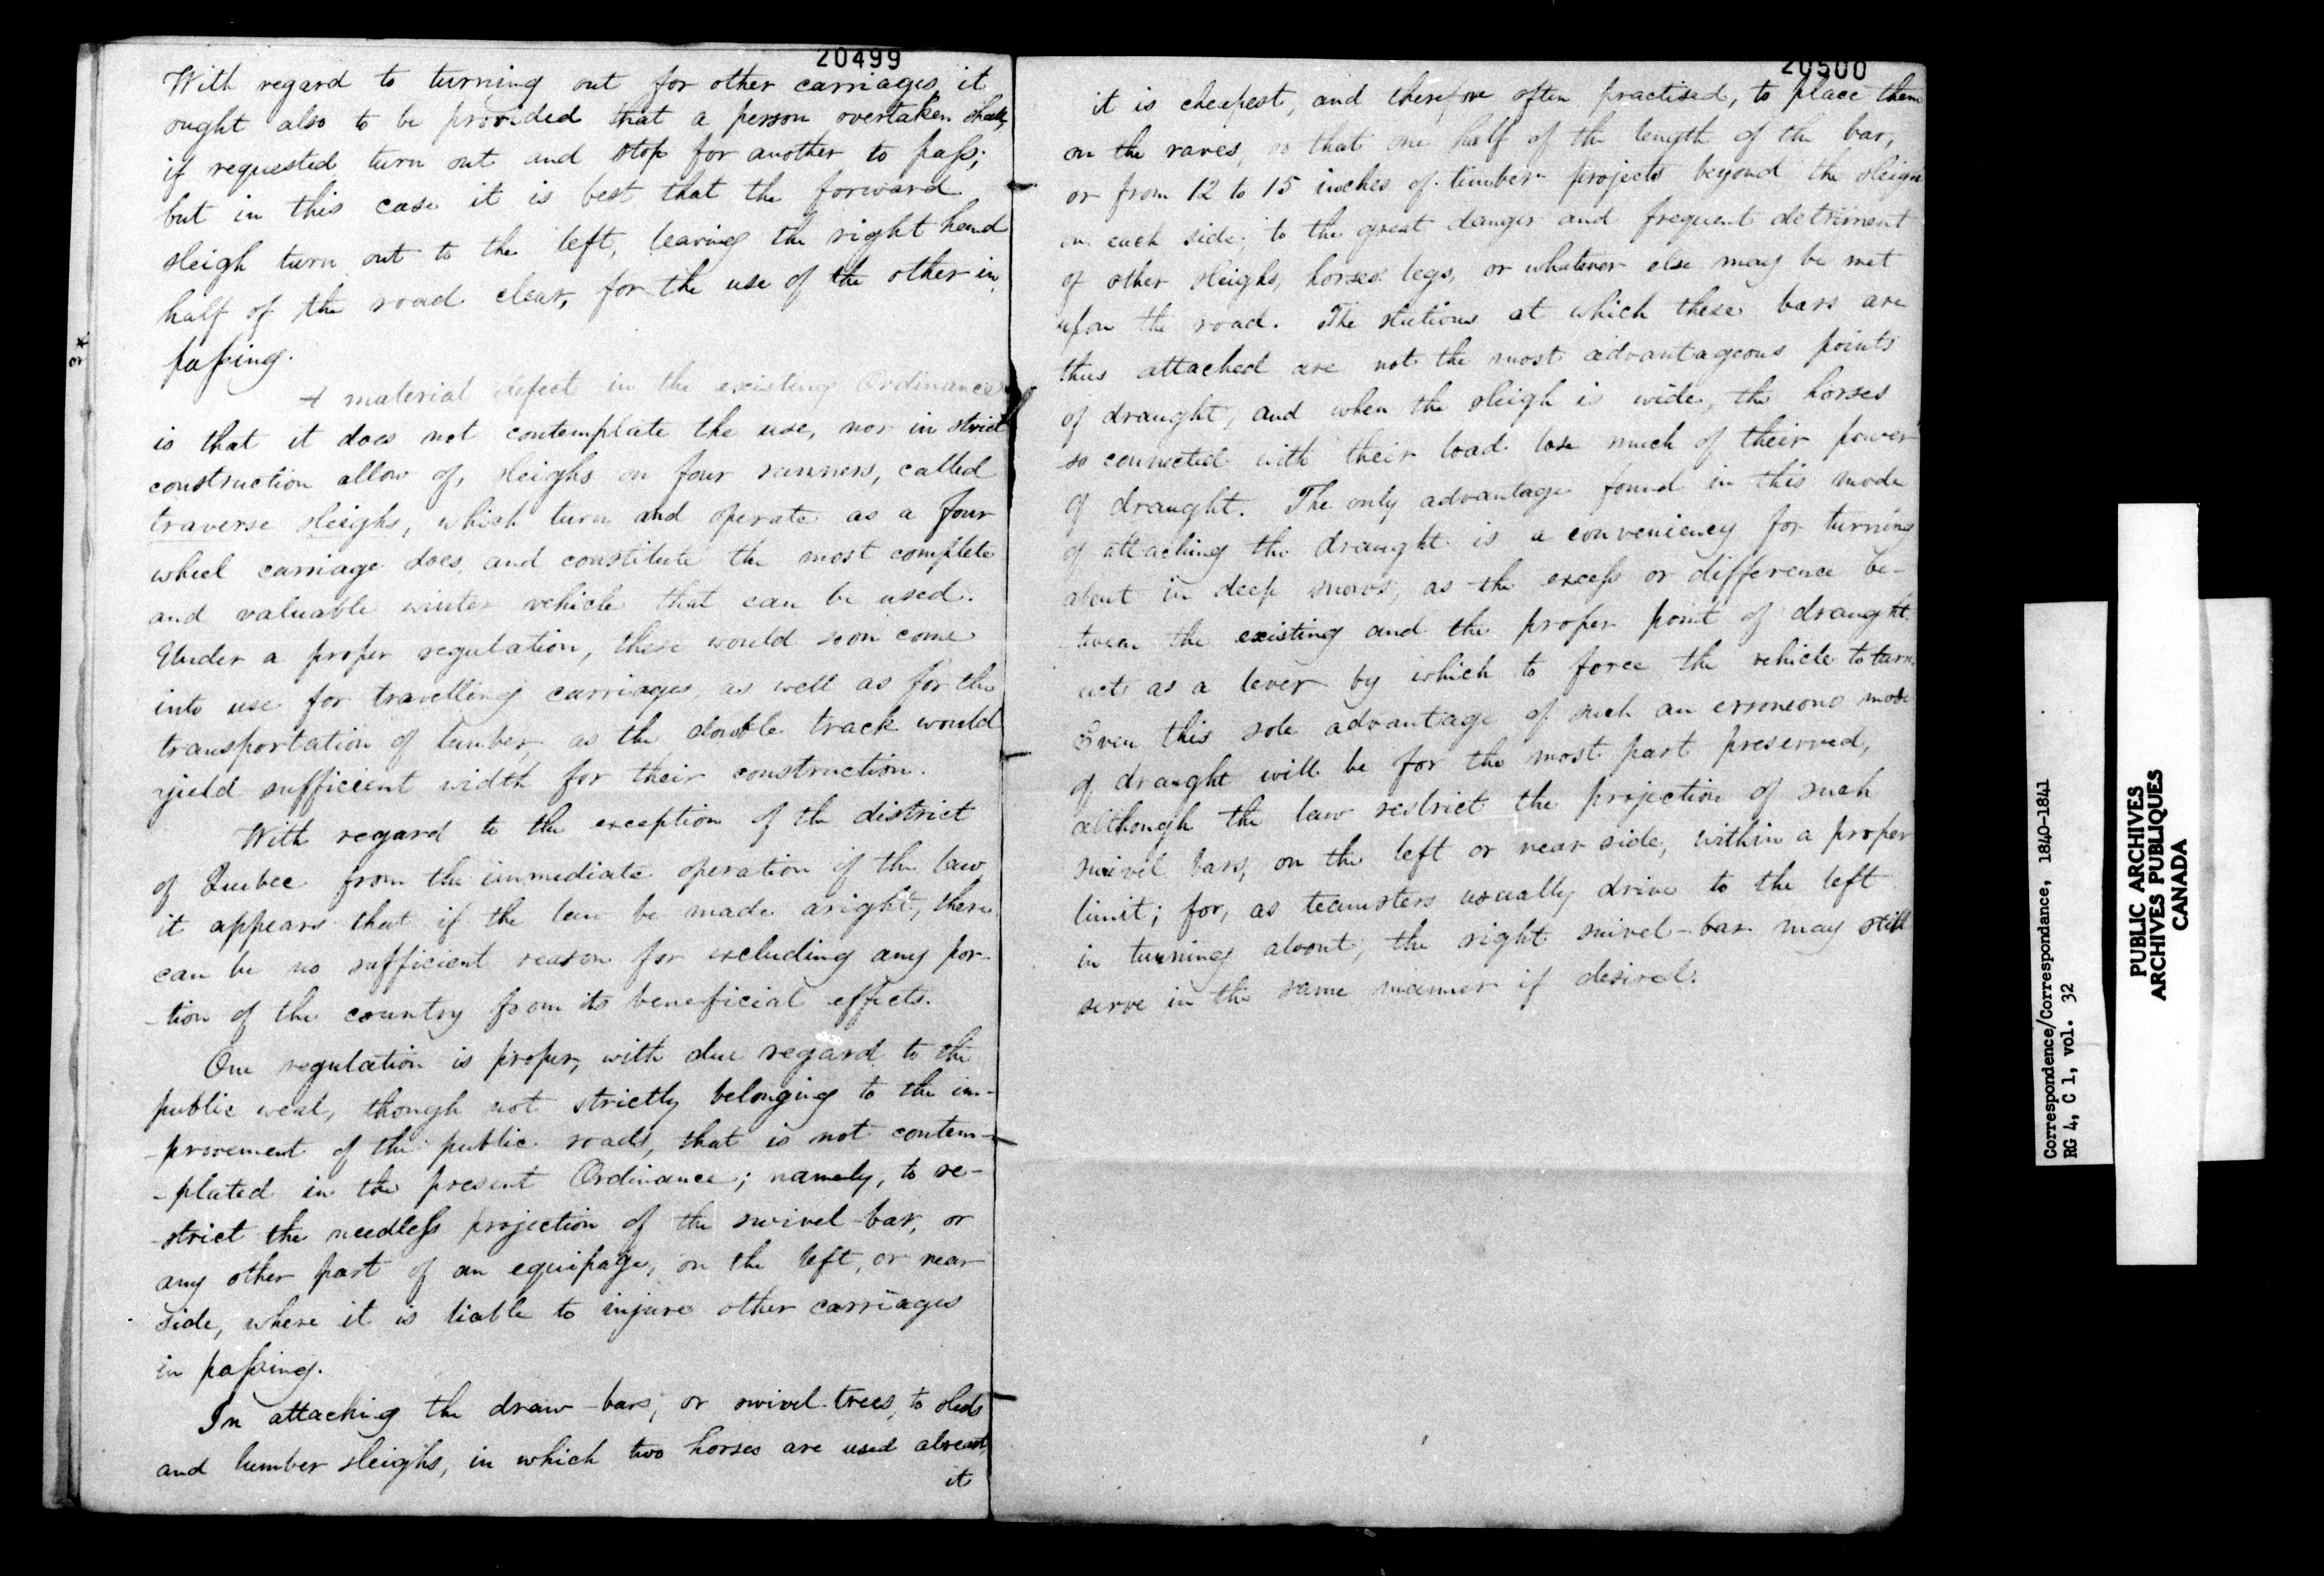 20499
With regard to turning out for other carriages, it
ought also to be provided that a person overtaken shall,
if requested turn out and stop for another to paſs;
but in this case it is best that the forward
sleigh turn out to the left, leaving the right hand
half of the road clear, for the use of the other in
paſsing.
A material defect in the existing Ordinance
is that it does not contemplate the use, nor in strict
construction allow of, sleighs on four runners, called
traverse sleighs, which turn and operate as a four
wheel carriage does, and constitute the most complete
and valuable winter vehicle that can be used.
Under a proper regulation, these would soon come
into use for travelling carriages, as well as for the
transportation of lumber, as the double track would
yield sufficient width for their construction.
With regard to the exception of the district
of Quebec from the immediate operation of the law,
it appears that if the law be made aright, there
can be no sufficient reason for excluding any por-
-tion of the country from its beneficial effects.
One regulation is proper, with due regard to the
public weal, though not strictly belonging to the im-
-provement of the public roads, that is not contem-
-plated in the present Ordinance; namely, to re-
-strict the needleſs projection of the swivel-bar, or
any other part of an equipage, on the left, or near
side, where it is liable to injure other carriages
in paſsing.
In attaching the draw-bars, or swivel-trees, to sleds
and lumber sleighs, in which two horses are used abreast,
it
20500
it is cheapest, and therefore often practised, to place them
on the raves, so that one half of the length of the bar,
or from 12 to 15 inches of timber projects beyond the sleigh
on each side; to the great danger and frequent detriment
of other sleighs, horses' legs, or whatever else may be met
upon the road. The stations at which these bars are
thus attached are not the most advantageous points
of draught, and when the sleigh is wide, the horses
so connected with their load lose much of their power
of draught. The only advantage found in this mode
of attaching the draught is a conveniency for turning
about in deep snows, as the exceſs or difference be-
-tween the existing and the proper point of draught
acts as a lever by which to force the vehicle to turn.
Even this sole advantage of such an erroneous mode
of draught will be for the most part preserved,
although the law restrict the projection of such
swivel bars, on the left or near side, within a proper
limit; for, as teamsters usually drive to the left
in turning about, the right swivel-bar may still
serve in the same manner if desired.
Correspondence/Correspondance, 1840-1841
RG 4, C 1, vol. 32
PUBLIC ARCHIVES
ARCHIVES PUBLIQUES
CANADA